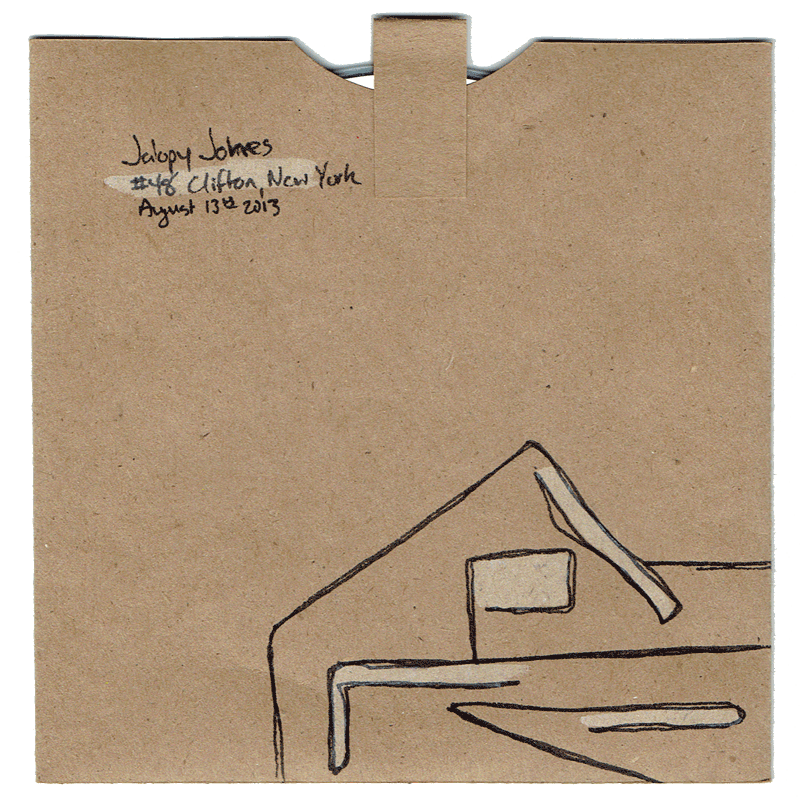 Jalopy Johnes
#48 Clifton, New York
August 13th 2013